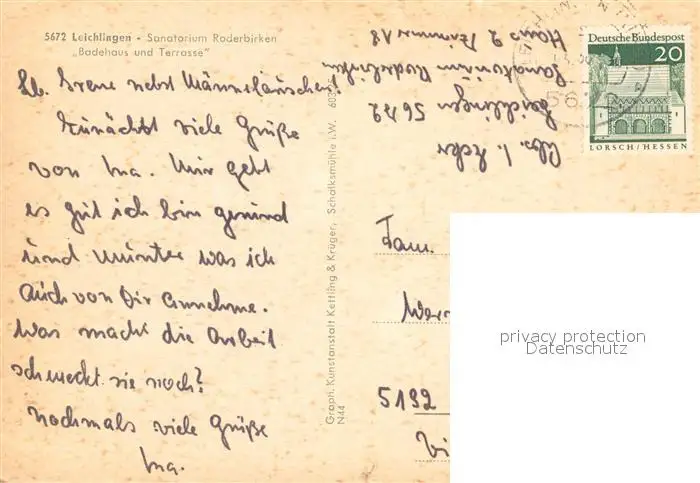 5672 Leichlingen - Sanatorium Roderbirken
„Badehaus und Terrasse"
Lb. Irene nebst
Zunächst viele Grüße
von Ina. Mir geht
es gut ich bin gesund
und munter was ich
auch von Dir annehme.
Was macht die Arbeit
schmeckt sie noch?
Nochmals viele Grüße
Ina.
Graph. Kunstanstalt Kettling & Krüger, Schalksmühle i.W.
N44
Abs. I.
Leichlingen 5672
Sanatorium Roderbirken
Haus 2 Zimmer 18
Deutsche Bundespost
20
LORSCH/HESSEN
Fam.
5192
privacy protection
Datenschutz